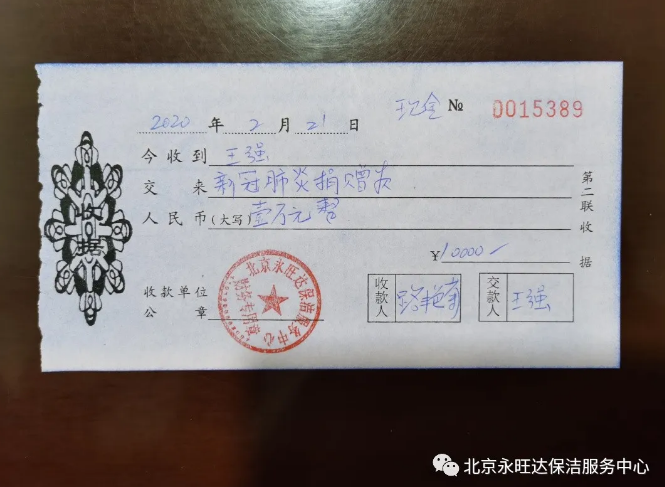 现金 № 0015389
2020 年 2 月 21 日
今收到 王强
交来 新冠肺炎捐赠款
人民币(大写) 壹万元整
¥10000-
收款单位
公章
收款人
交款人 王强
第二联收据
收据
北京永旺达保洁服务中心
财务专用章
北京永旺达保洁服务中心